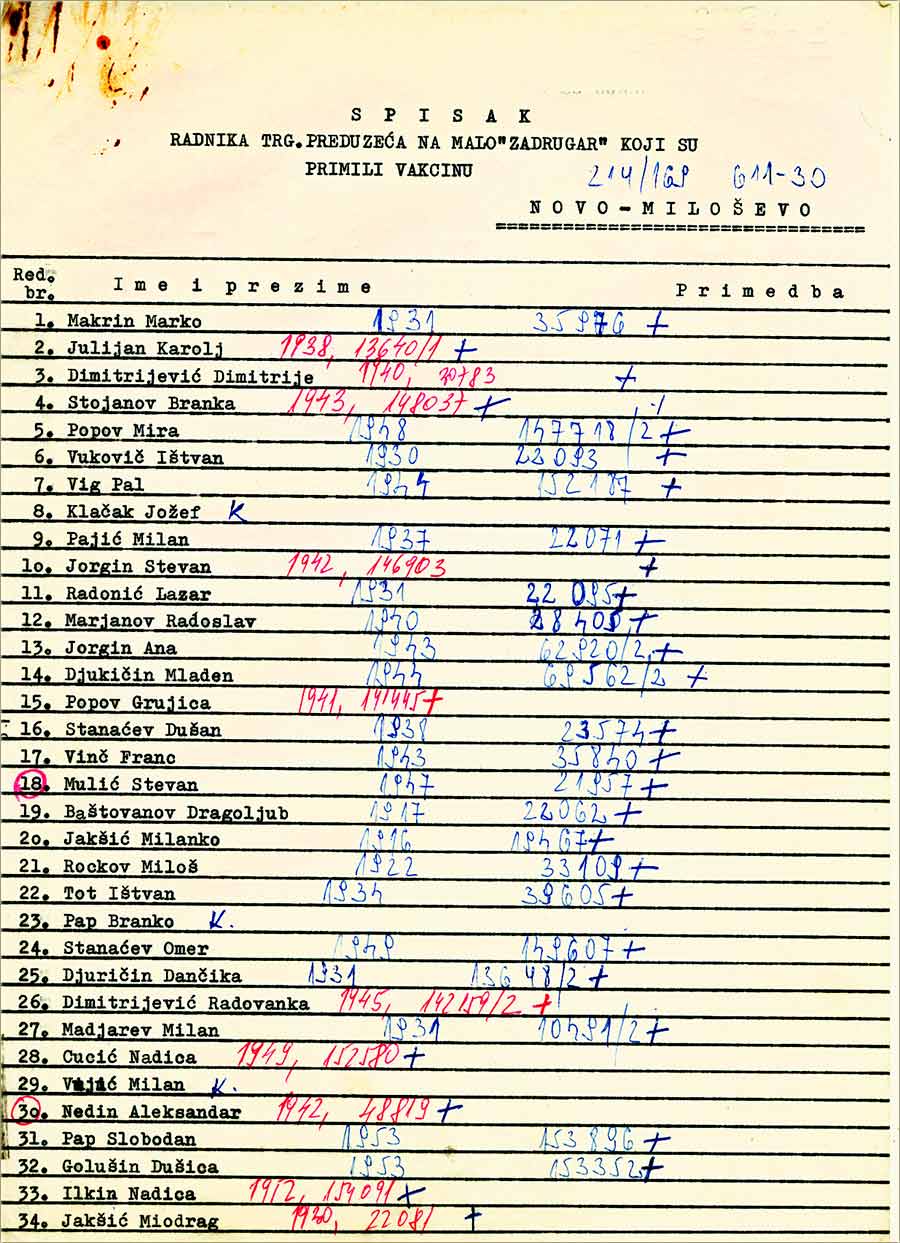 S P I S A K
RADNIKA TRG.PREDUZEĆA NA MALO"ZADRUGAR" KOJI SU
PRIMILI VAKCINU
214/169 611-30
N O V O - M I L O Š E V O
Red. br. I m e i p r e z i m e P r i m e d b a
1. Makrin Marko 1931 35976 +
2. Julijan Karolj 1938, 13640/1 +
3. Dimitrijević Dimitrije 1940, 20783 +
4. Stojanov Branka 1943, 148037 +
5. Popov Mira 1948 147718/2 +
6. Vukovič Ištvan 1930 22093 +
7. Vig Pal 1944 152187 +
8. Klačak Jožef K
9. Pajić Milan 1937 22071 +
1o. Jorgin Stevan 1942, 146903 +
11. Radonić Lazar 1931 22095 +
12. Marjanov Radoslav 1940 28405 +
13. Jorgin Ana 1943 62920/2 +
14. Djukičin Mladen 1944 69562/2 +
15. Popov Grujica 1941, 141445 +
16. Stanaćev Dušan 1938 23574 +
17. Vinč Franc 1943 35840 +
18. Mulić Stevan 1947 21957 +
19. Baštovanov Dragoljub 1917 22062 +
2o. Jakšić Milanko 1916 19467 +
21. Rockov Miloš 1922 33109 +
22. Tot Ištvan 1934 39605 +
23. Pap Branko K.
24. Stanaćev Omer 1949 149607 +
25. Djuričin Dančika 1931 13648/2 +
26. Dimitrijević Radovanka 1945, 142159/2 +
27. Madjarev Milan 1931 10491/2 +
28. Cucić Nadica 1949, 152580 +
29. Vujić Milan K.
3o. Nedin Aleksandar 1942, 48819 +
31. Pap Slobodan 1953 153896 +
32. Golušin Dušica 1953 153352 +
33. Ilkin Nadica 154091 +
34. Jakšić Miodrag 22081 +